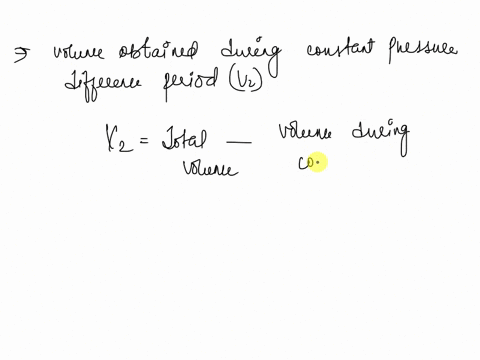 ⇒ volume obtained during constant pressure
difference period (V2)
V2 = Total — volume during
volume co.